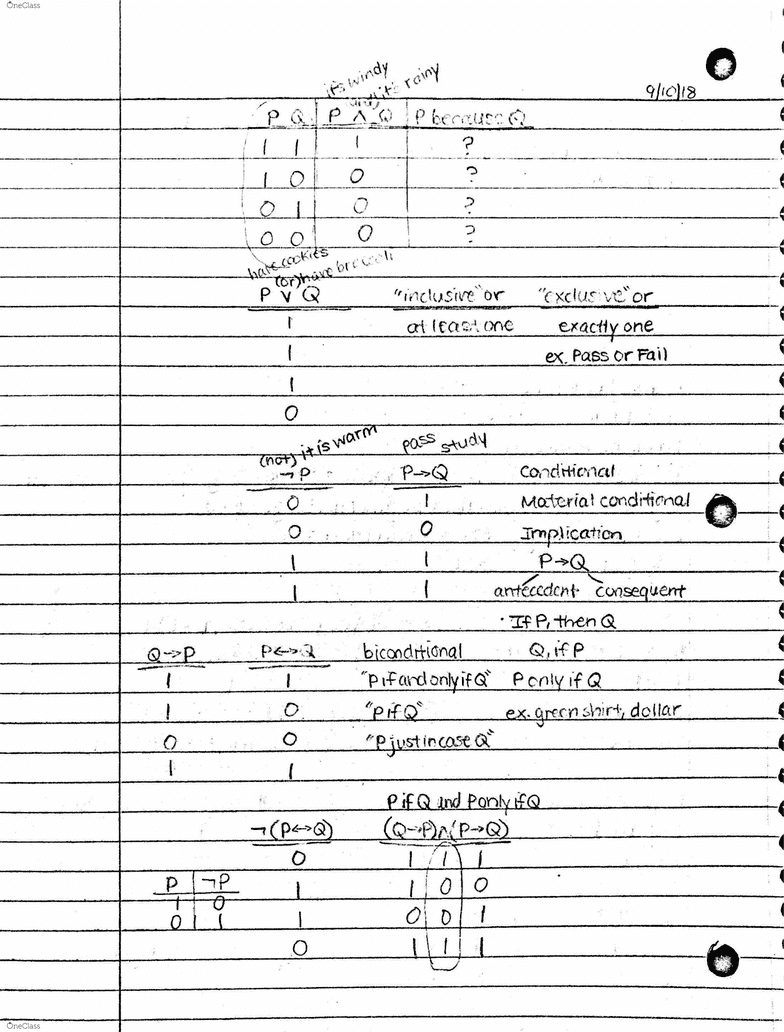 OneClass
9/10/18
it's windy
(and) it's rainy
P Q P ∧ Q P because Q
1 1 1 ?
1 0 0 ?
0 1 0 ?
0 0 0 ?
have cookies
(or) have broccoli
P ∨ Q "inclusive" or "exclusive" or
1 at least one exactly one
1 ex. Pass or Fail
1
0
(not) it is warm pass study
¬P P→Q Conditional
0 1 Material conditional
0 0 Implication
1 1 P→Q
1 1 antecedent consequent
· If P, then Q
Q→P P↔Q biconditional Q, if P
1 1 "P if and only if Q" P only if Q
1 0 "P if Q" ex. green shirt, dollar
0 0 "P just in case Q"
1 1
P if Q and P only if Q
¬(P↔Q) (Q→P)∧(P→Q)
0 1 1 1
P ¬P 1 1 0 0
1 0
0 1 1 0 0 1
0 1 1 1
OneClass